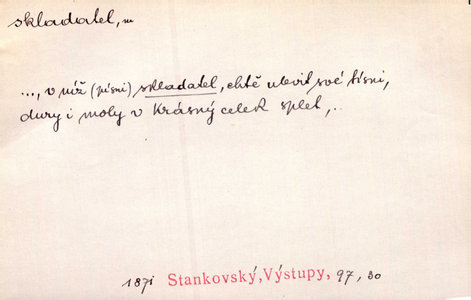 skladatel, m
..., v níž (písni) skladatel, chtě ulevit své tísni,
dury i moly v krásný celek splet,..
1871 Stankovský, Výstupy, 97, 30